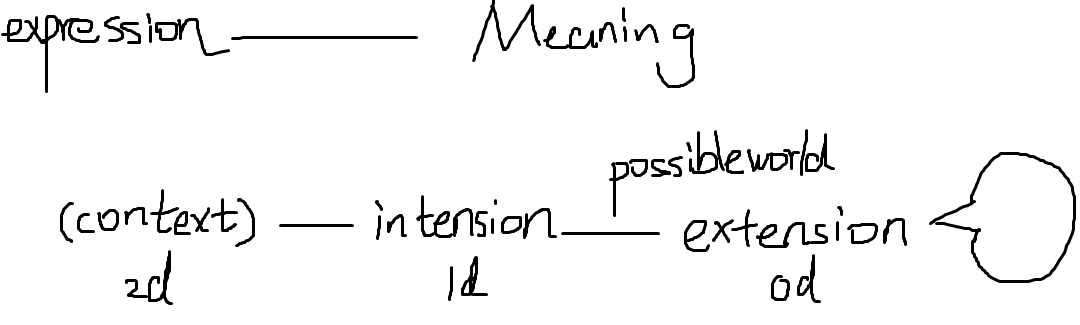 expression Meaning
possibleworld
(context) intension extension
2d 1d 0d